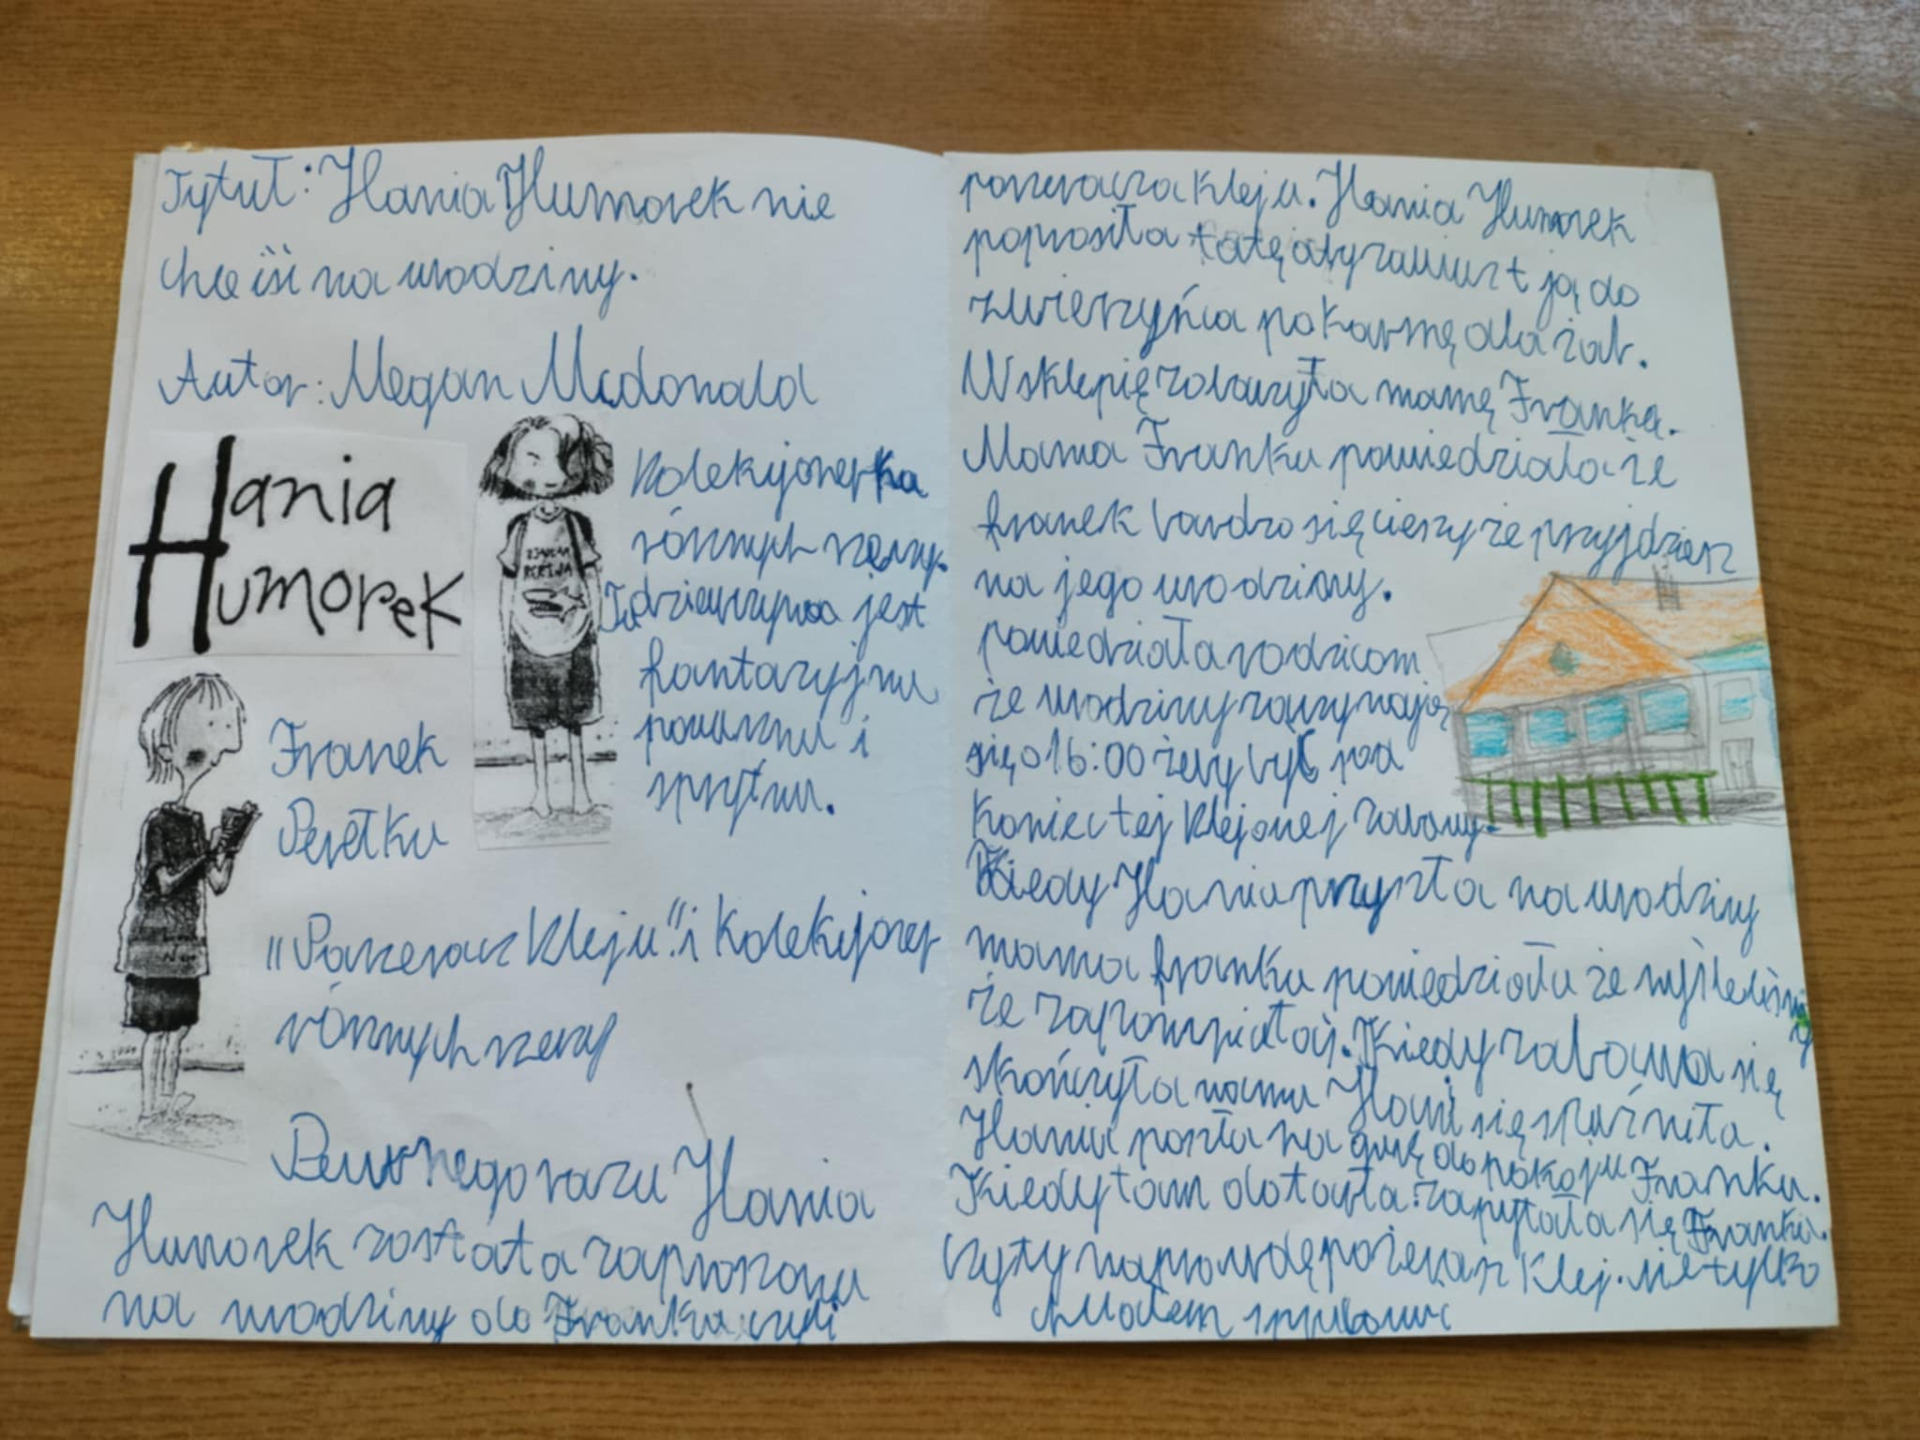 Tytuł: Hania Humorek nie
chce iść na urodziny.
Autor: Megan Mcdonald
Hania
Humorek
Kolekcjonerka
różnych rzeczy.
Ta dziewczynka jest
fantazyjna
poważna i
sprytna.
Franek
Perełka
"Pożeracz kleju" i kolekcjoner
różnych rzeczy
Pewnego razu Hania
Humorek została zaproszona
na urodziny do Franka czyli
pożeracza kleju. Hania Humorek
poprosiła tatę aby zawiuzł ją do
zwierzyńca po karmę dla żab.
W sklepię zobaczyła mamę Franka.
Mama Franka powiedziała że
franek bardzo się cieszy że przyjdziesz
na jego urodziny.
powiedziała rodzicom
że urodziny zaczynają
się o 16:00 żeby być pod
koniec tej klejonej zabawy.
Kiedy Hania przyszła na urodziny
mama franka powiedziała że myśleliśmy
że zapomniałaś. Kiedy zabawa się
skończyła mama Hani się spuźniła.
Hania poszła na gurę do pokoju Franka.
Kiedy tam dotarła zapytała się Franka.
czy ty naprawdę pożerasz klej. nie tylko